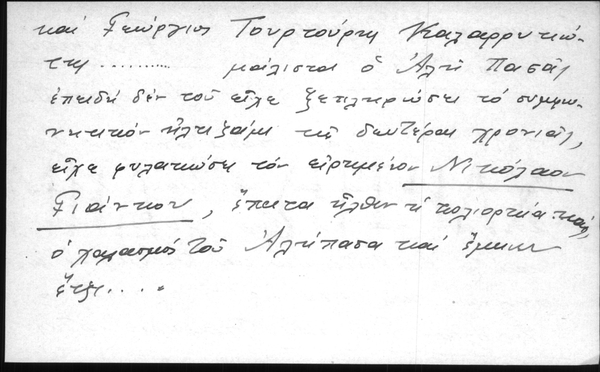 καί Γεώργιος Τουρτούρης Καλαρρυτιώ-
της .......... μάλιστα ὁ Ἀλῆ Πασᾶς
ἐπειδή δέν τοῦ εἶχε ξεπληρώσει τό συμφω-
νητικόν τῆς δευτέρας χρονιᾶς,
εἶχε φυλακώσει τόν εἰρημένον Νικόλαον
Γιάνκου, ἔπειτα ἦλθεν ἡ πολιορκία καί
ὁ χαλασμός τοῦ Ἀλήπασα καί ἔμεινεν
ἔτσι....